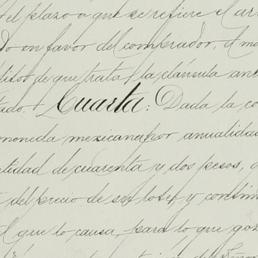 el plazo a que se refiere el ar
do en favor del comprador, el m
ditos de que trata la cláusula an
tado. Cuarta: Dada la co
moneda mexicana por anualidad
tidad de cuarenta y dos pesos, c
del precio de
l que lo causa, para lo que go